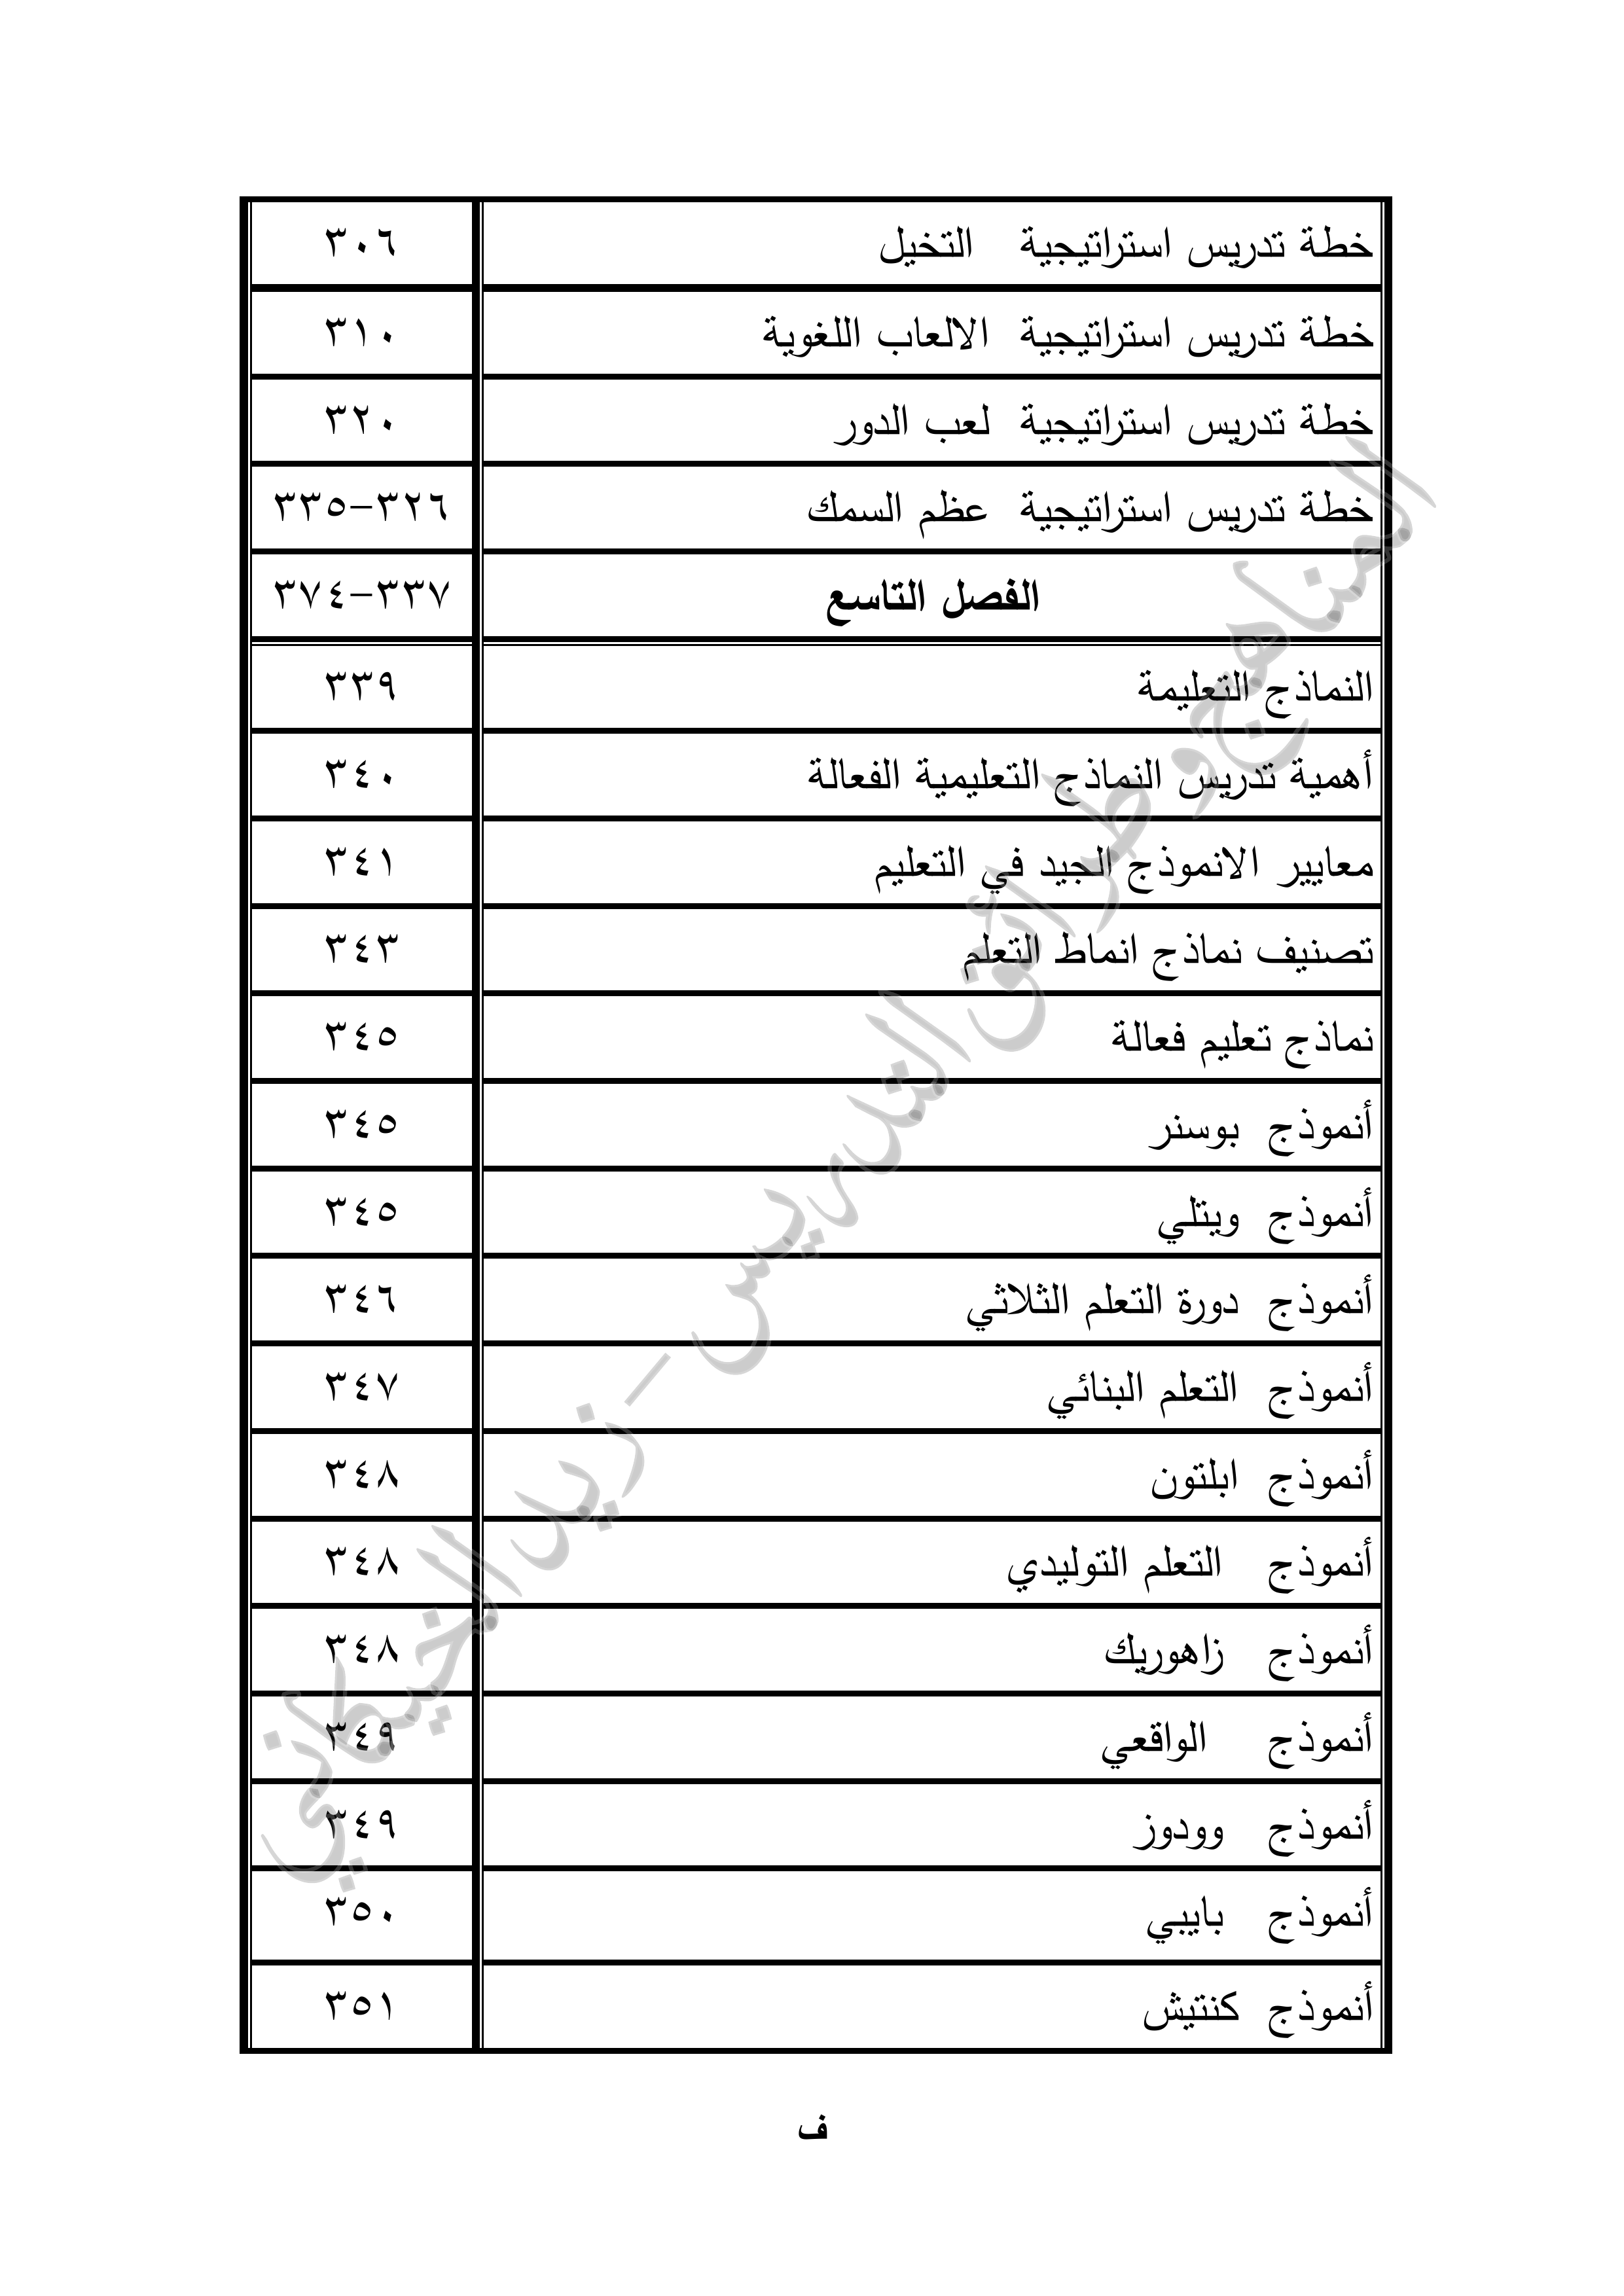 خطة تدريس استراتيجية التخيل ٣٠٦
خطة تدريس استراتيجية الالعاب اللغوية ٣١٠
خطة تدريس استراتيجية لعب الدور ٣٢٠
خطة تدريس استراتيجية عظم السمك ٣٢٦-٣٣٥
الفصل التاسع ٣٣٧-٣٧٤
النماذج التعليمة ٣٣٩
أهمية تدريس النماذج التعليمية الفعالة ٣٤٠
معايير الانموذج الجيد في التعليم ٣٤١
تصنيف نماذج انماط التعلم ٣٤٣
نماذج تعليم فعالة ٣٤٥
أنموذج بوسنر ٣٤٥
أنموذج ويتلي ٣٤٥
أنموذج دورة التعلم الثلاثي ٣٤٦
أنموذج التعلم البنائي ٣٤٧
أنموذج ابلتون ٣٤٨
أنموذج التعلم التوليدي ٣٤٨
أنموذج زاهوريك ٣٤٨
أنموذج الواقعي ٣٤٩
أنموذج وودوز ٣٤٩
أنموذج بايبي ٣٥٠
أنموذج كنتيش ٣٥١
المناهج وطرائق التدريس - زيد الخيكاني
ف